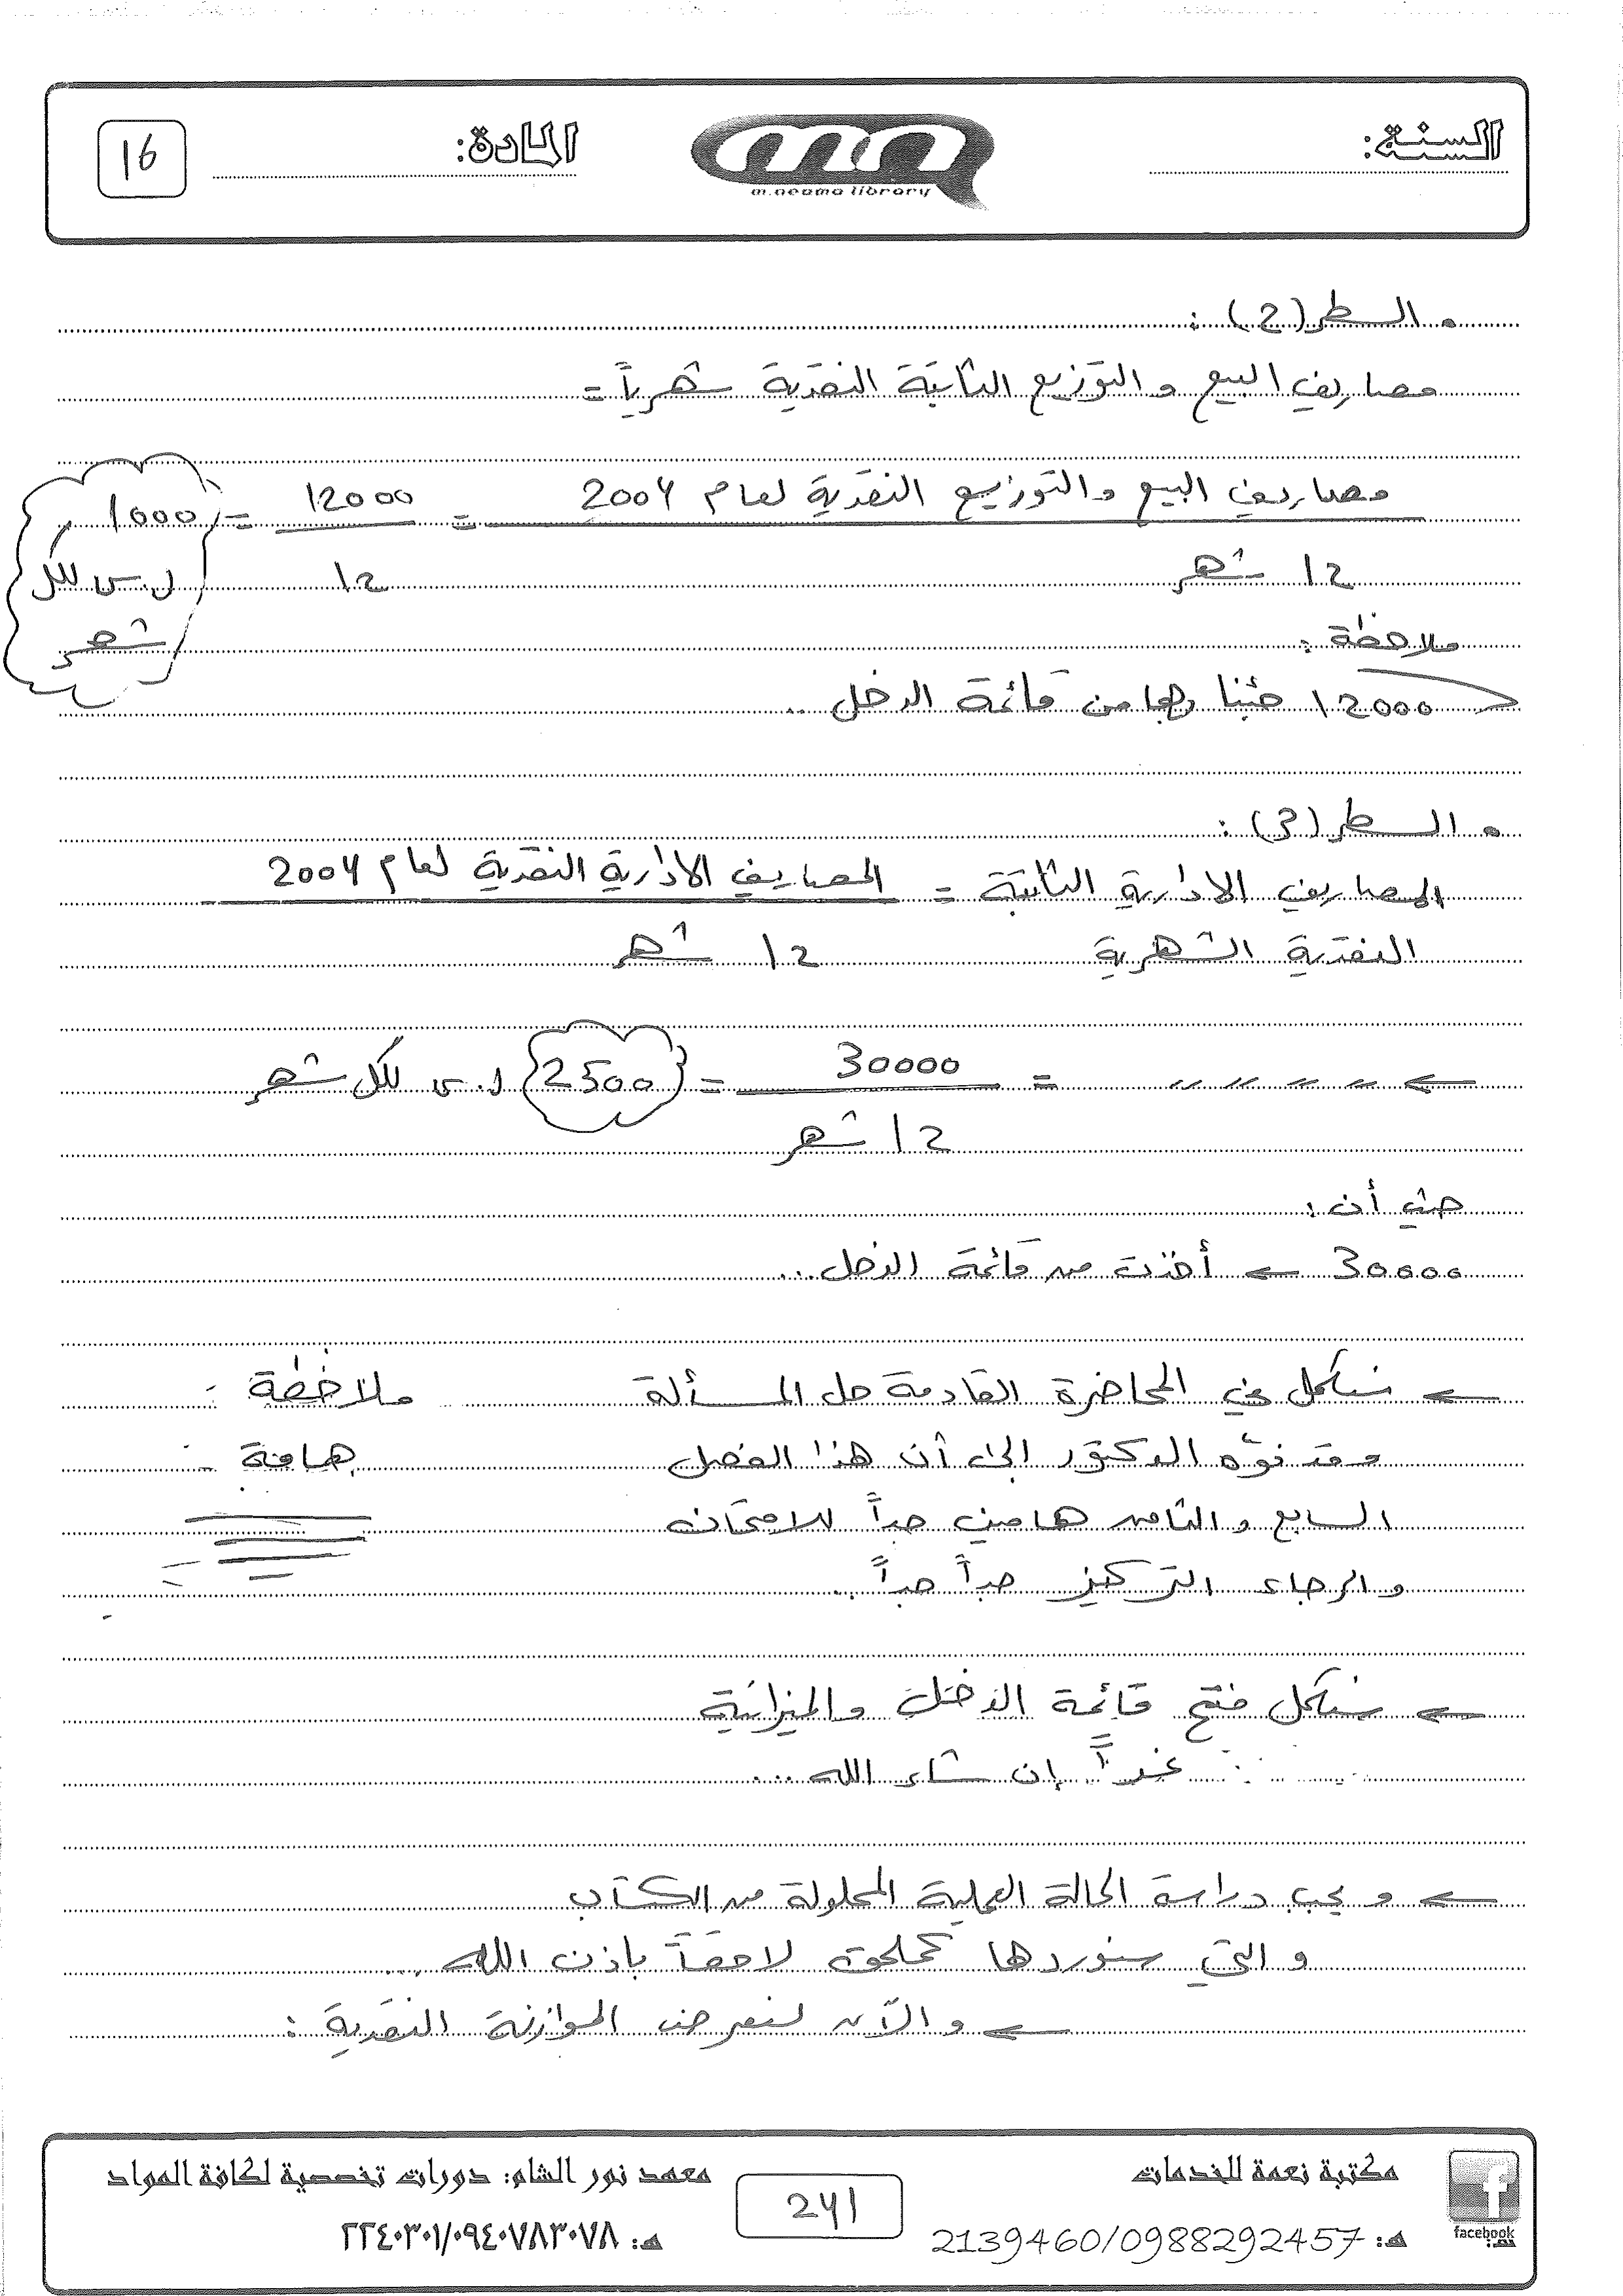 السنة:
m.neama library
المادة:
16
• السطر (2) :
مصاريف البيع و التوزيع الثابتة النقدية شهرياً =
مصاريف البيع والتوزيع النقدية لعام 2004 = 12000 = 1000
12 شهر 12 ل.س لكل
ملاحظة : شهر
12000 جئنا بها من قائمة الدخل ..
• السطر (3) :
المصاريف الادارية الثابتة = المصاريف الادارية النقدية لعام 2004
النقدية الشهرية 12 شهر
← " " " " = 30000 = 2500 ل.س لكل شهر
12 شهر
حيث أن :
30000 ← أخذت من قائمة الدخل...
← سنكمل في المحاضرة القادمة حل المسألة ملاحظة :
وقد نوّه الدكتور إلى أن هذا الفصل هامة :
السابع و الثامن هامين جداً للامتحان
و الرجاء التركيز جداً جداً ..
← سنكمل فتح قائمة الدخل والميزانية
غداً إن شاء الله ...
← و يجب دراسة الحالة العملية المحلولة من الكتاب
و التي سنوردها كملحق لاحقاً بإذن الله ...
← و الآن لنعرض الموازنة النقدية :
facebook
مكتبة نعمة للخدمات
هـ: 2139460/0988292457
241
معهد نور الشام: دورات تخصصية لكافة المواد
هـ: ٢٢٤٠٣٠١/٠٩٤٠٧٨٣٠٧٨